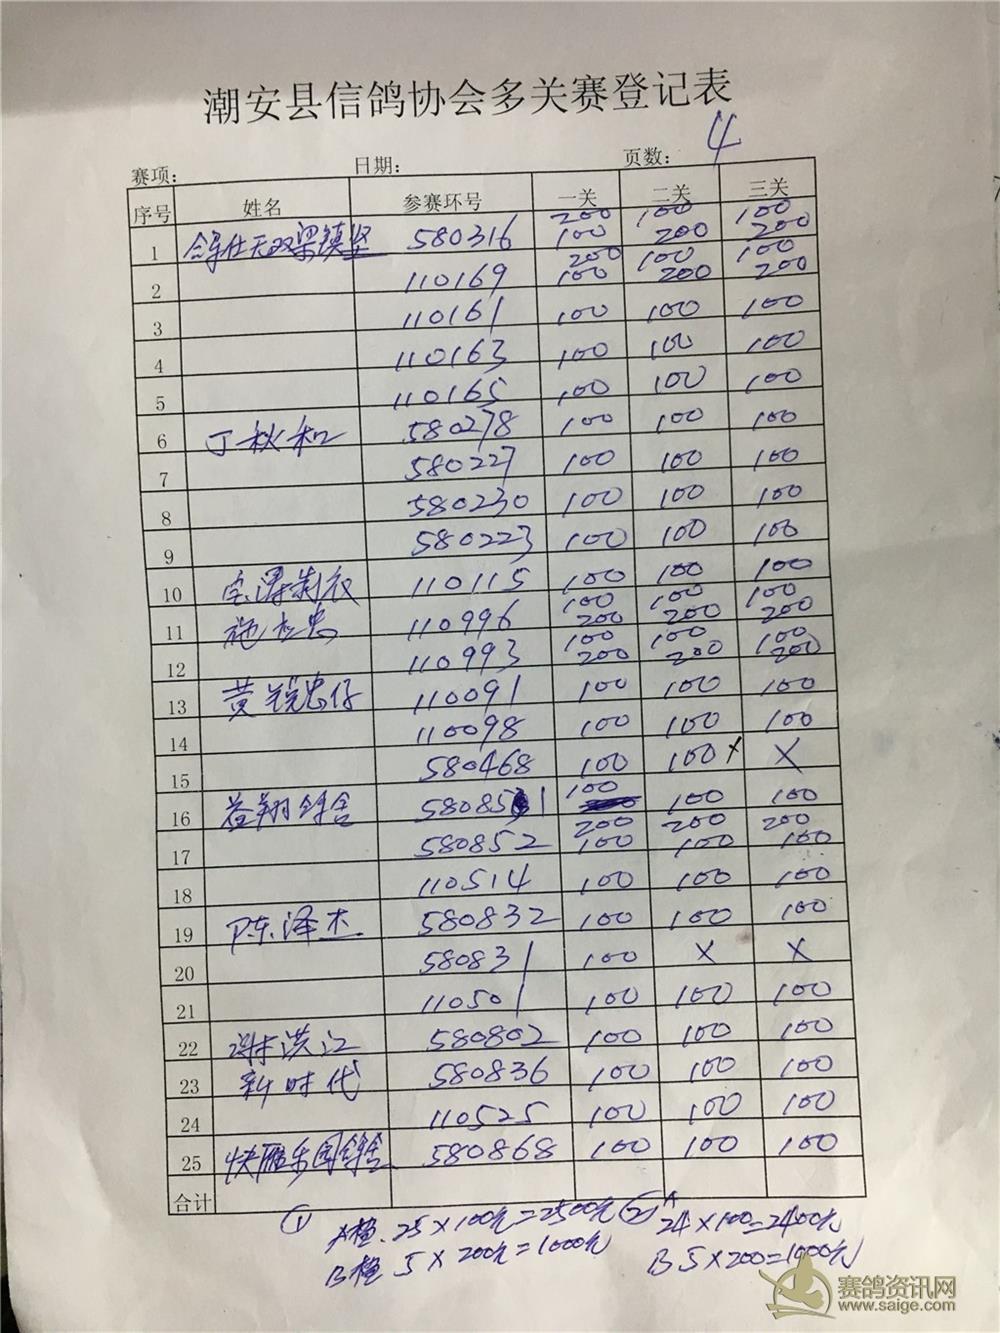 潮安县信鸽协会多关赛登记表
4
赛项: 日期: 页数:
序号 姓名 参赛环号 一关 二关 三关
1 梁镇坚 580316 200 100 100 200 100 200
2 110169 200 100 100 200 100 200
3 110161 100 100 100
4 110163 100 100 100
5 110165 100 100 100
6 丁秋和 580278 100 100 100
7 580227 100 100 100
8 580230 100 100 100
9 580223 100 100 100
10 制衣 110115 100 100 100
11 110996 100 200 100 200 100 200
12 110993 100 200 100 200 100 200
13 黄锐忠仔 110091 100 100 100
14 110098 100 100 100
15 580468 100 100 x X
16 翔鸽舍 580851 100 100 100
17 580852 200 100 200 100 200 100
18 110514 100 100 100
19 陈泽杰 580832 100 100 100
20 580831 100 X X
21 110501 100 100 100
22 谢洪江 580802 100 100 100
23 新时代 580836 100 100 100
24 110525 100 100 100
25 乐园鸽舍 580868 100 100 100
合计
① A档. 25×100元=2500元 ② A 24×100=2400元
B档 5×200元=1000元 B 5×200=1000元
赛鸽资讯网
www.saige.com